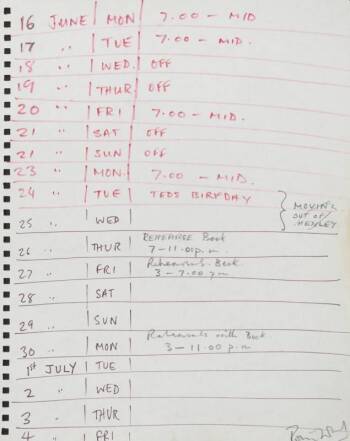 16 JUNE | MON | 7.00 - MID
17 " | TUE | 7.00 - MID.
18 " | WED. | OFF
19 " | THUR | OFF
20 " | FRI | 7.00 - MID.
21 " | SAT | OFF
21 " | SUN | OFF
23 " | MON. | 7.00 - MID.
24 " | TUE | TEDS BIRFDAY
MOVING
OUT OF
25 " | WED |
26 " | THUR | REHEARSE Beck
7-11.00p.m
27 " | FRI | Rehearsals. Beck
3 - 7.00 p.m
28 " | SAT |
29 " | SUN |
30 " | MON | Rehearsals with Beck
3 - 11.00 p.m
1st JULY | TUE |
2 " | WED |
3 " | THUR |
4 " | FRI |